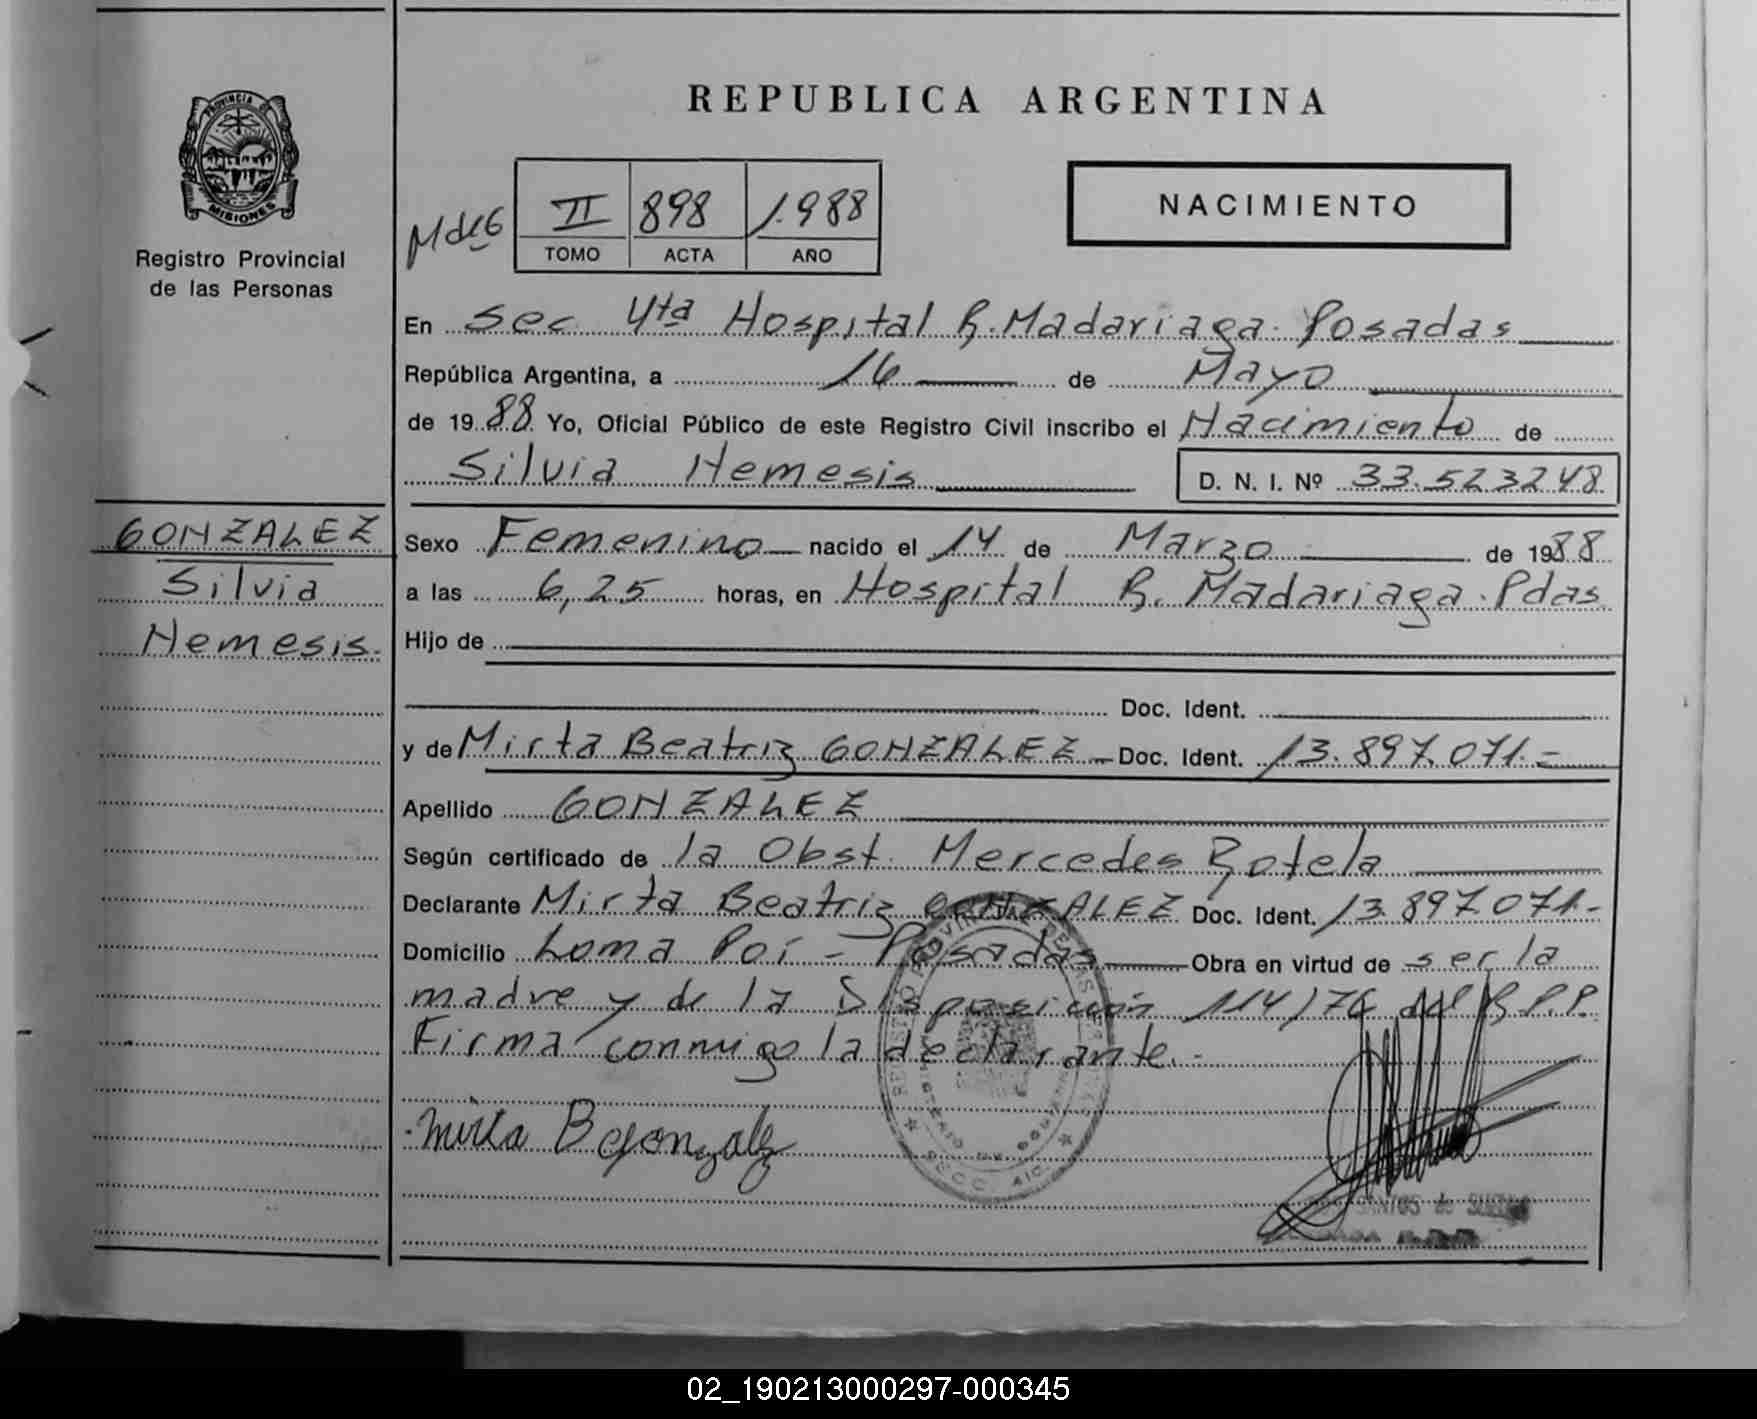 REPUBLICA ARGENTINA
PROVINCIA DE
MISIONES
Registro Provincial
de las Personas
II 898 1.988
TOMO ACTA AÑO
NACIMIENTO
En Sec 4ta Hospital R. Madariaga. Posadas
República Argentina, a 16 de Mayo
de 1988 Yo, Oficial Público de este Registro Civil inscribo el Nacimiento de
Silvia Nemesis D. N. I. Nº 33.523248
GONZALEZ
Silvia
Nemesis.
Sexo Femenino nacido el 14 de Marzo de 1988
a las 6,25 horas, en Hospital R. Madariaga. Pdas
Hijo de
Doc. Ident.
y de Mirta Beatriz GONZALEZ - Doc. Ident. 13.897.071.=
Apellido GONZALEZ
Según certificado de la Obst. Mercedes Rotela
Declarante Mirta Beatriz GONZALEZ Doc. Ident. 13.897.071.-
Domicilio Loma Poí - Posadas Obra en virtud de ser la
madre y de la Disposición 114/76 del R.P.P.
Firma conmigo la declarante.-
Mirta B Gonzalez
SANTOS de
02_190213000297-000345